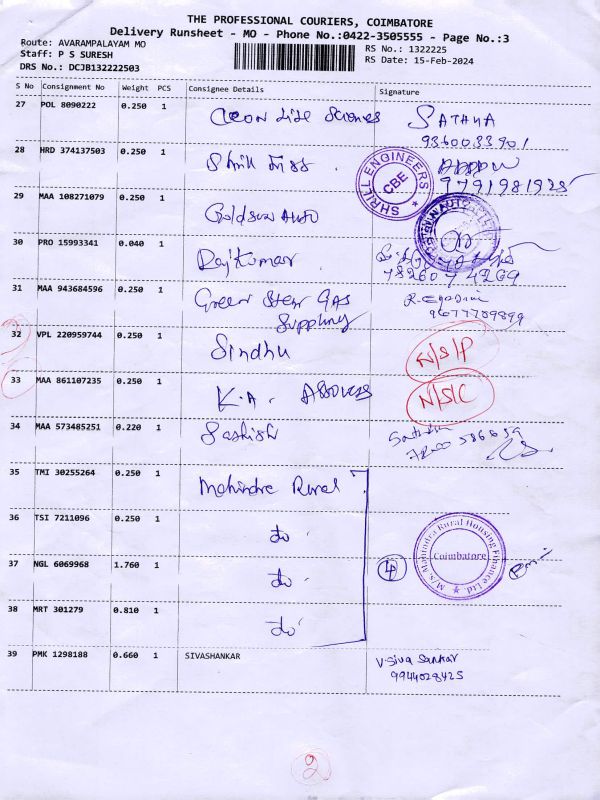 THE PROFESSIONAL COURIERS, COIMBATORE
Delivery Runsheet - MO - Phone No.:0422-3505555 - Page No.:3
Route: AVARAMPALAYAM MO
Staff: P S SURESH
DRS No.: DCJB132222503
RS No.: 1322225
RS Date: 15-Feb-2024
S No Consignment No Weight PCS Consignee Details Signature
27 POL 8090222 0.250 1 Life Sciences SATHYA
9360033901
28 HRD 374137503 0.250 1
SHRILL ENGINEERS CBE
9791981925
29 MAA 108271079 0.250 1 Goldsun Auto
30 PRO 15993341 0.040 1 Rajkumar
31 MAA 943684596 0.250 1 Green Star GAS
Supplying
32 VPL 220959744 0.250 1 Sindhu N/S/P
33 MAA 861107235 0.250 1 K.A. N/S/C
34 MAA 573485251 0.220 1 Sathish
35 TMI 30255264 0.250 1 Mahindra Rural
36 TSI 7211096 0.250 1 do
37 NGL 6069968 1.760 1 do 4
M/s Mahindra Rural Housing Finance Ltd. Coimbatore
38 MRT 301279 0.810 1 do
39 PMK 1298188 0.660 1 SIVASHANKAR V.Siva Sankar
9944028425
2